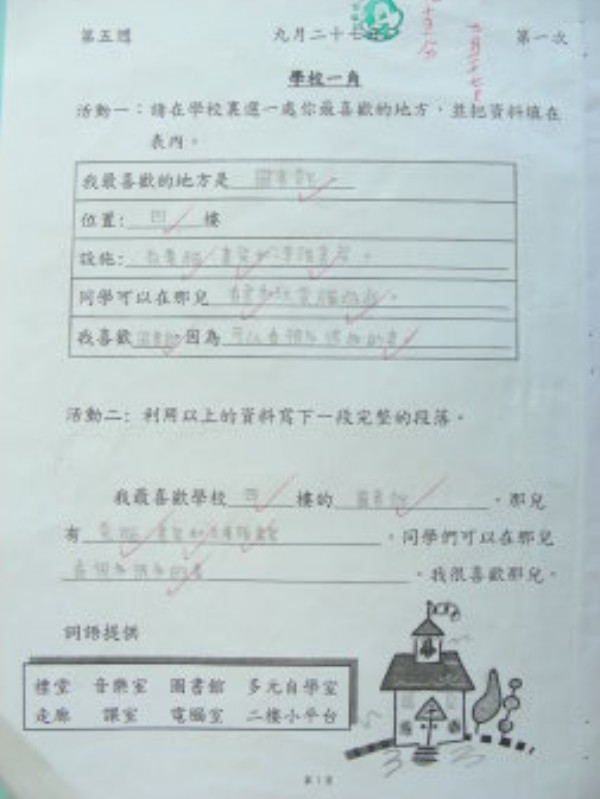 第五週 九月二十七日 第一次
學校一角
活動一：請在學校裏選一處你最喜歡的地方，並把資料填在
表內。
我最喜歡的地方是 圖書館
位置: 四 樓
設施:
同學可以在那兒
我喜歡 圖書館 因為 可以看很多
活動二: 利用以上的資料寫下一段完整的段落。
我最喜歡學校 四 樓的 圖書館 ，那兒
有 電腦 ，同學們可以在那兒
看很多 。我很喜歡那兒。
詞語提供
禮堂 音樂室 圖書館 多元自學室
走廊 課室 電腦室 二樓小平台
第1頁